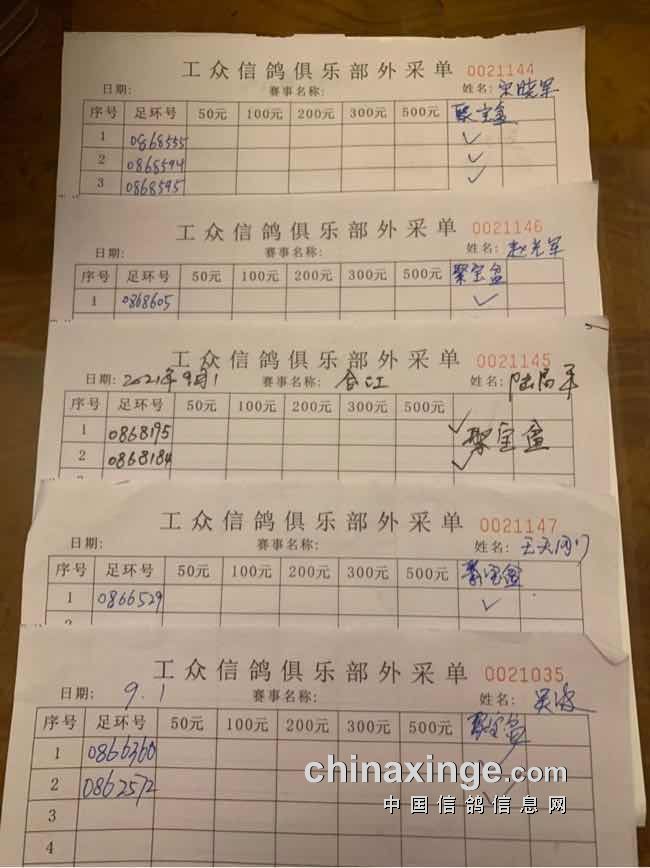 工众信鸽俱乐部外采单 0021144
日期: 赛事名称: 姓名: 宋晓军
序号 足环号 50元 100元 200元 300元 500元 聚宝盆
1 0868555 ✓
2 0868594 ✓
3 0868595 ✓
工众信鸽俱乐部外采单 0021146
日期: 赛事名称: 姓名: 赵光军
序号 足环号 50元 100元 200元 300元 500元 聚宝盆
1 0868605 ✓
工众信鸽俱乐部外采单 0021145
日期: 2021年9月1 赛事名称: 合江 姓名:
序号 足环号 50元 100元 200元 300元 500元
1 0868195 ✓ 聚宝盆
2 0868184 ✓
工众信鸽俱乐部外采单 0021147
日期: 赛事名称: 姓名:
序号 足环号 50元 100元 200元 300元 500元 聚宝盆
1 0866529 ✓
2
工众信鸽俱乐部外采单 0021035
日期: 9.1 赛事名称: 姓名: 吴波
序号 足环号 50元 100元 200元 300元 500元 聚宝盆
1 0866360
2 0862572
3
4
chinaxinge.com
中国信鸽信息网